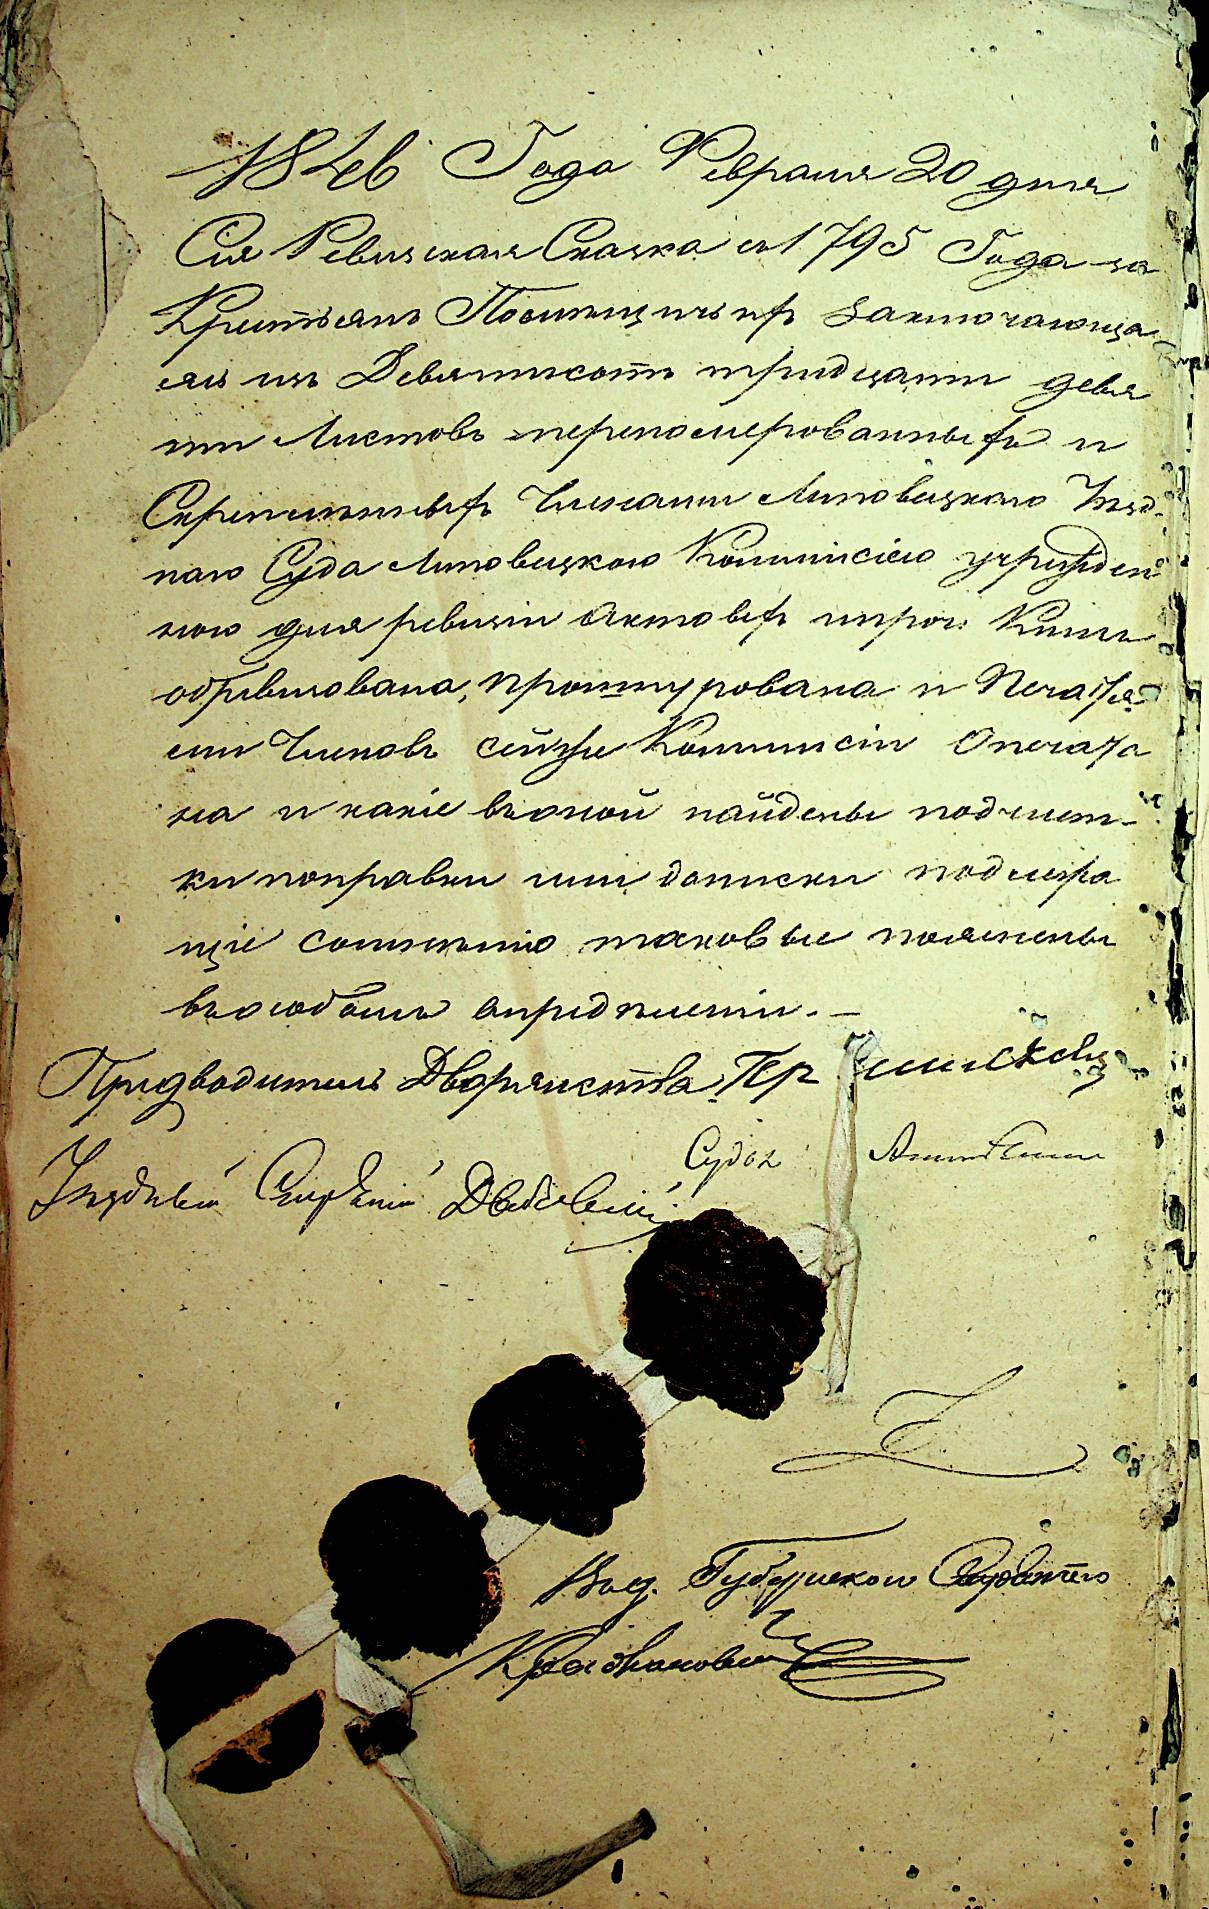 1846 Года Февраля 20 дня
Сия Ревизская Сказка съ 1795 Года за
Крестьянъ Помѣщичьихъ заключающа
яся изъ Девятисотъ тридцати девя
ти Листовъ перенумерованныхъ и
Скрепленныхъ Членами Липовецкого Уѣзд-
наго Суда Липовецкою Коммисіею учрежден
ною для ревизіи Актовыхъ и проч: Книгъ
обревизована, прошнурована и Печатя
ми Членовъ сей же Коммисіи Опечата
на и какіе въ оной найдены подчист-
ки поправки или дописки подлежа
щіе сомненію таковые пояснены
въ особомъ опредѣленіи. —
Предводитель Дворянства
Судья
Уѣздный Стряпчій
Губернскои